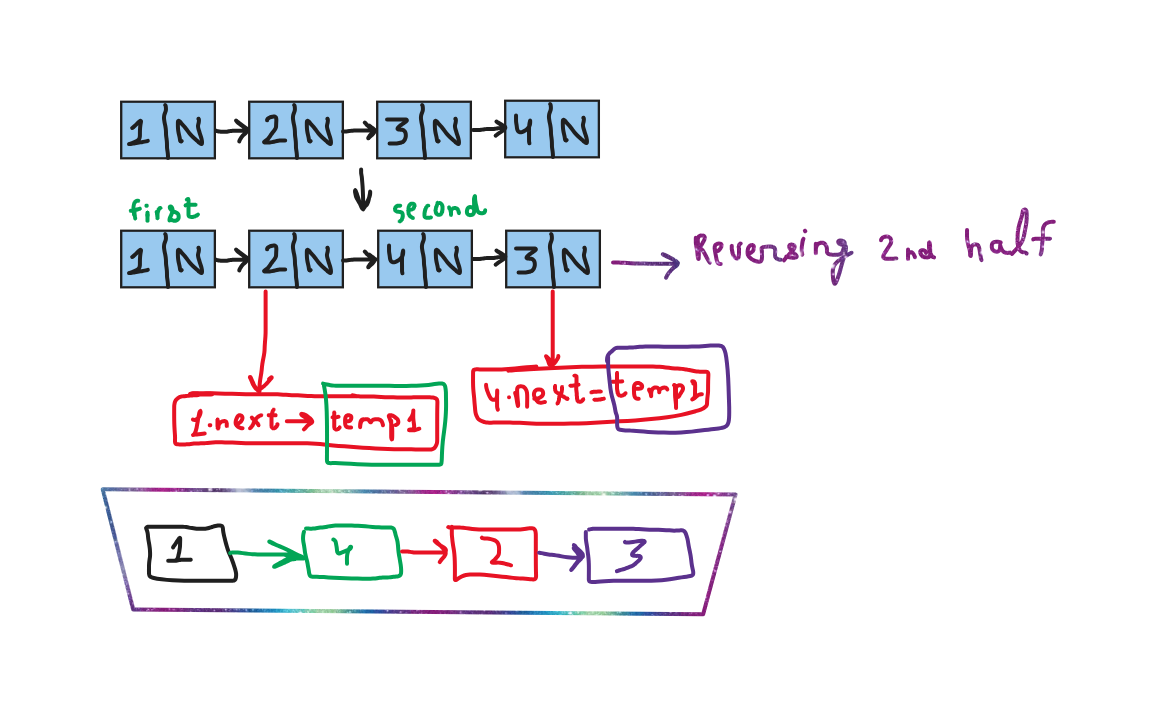 1 N 2 N 3 N 4 N
first second
1 N 2 N 4 N 3 N Reversing 2nd half
4.next = temp2
1.next → temp1
1 4 2 3